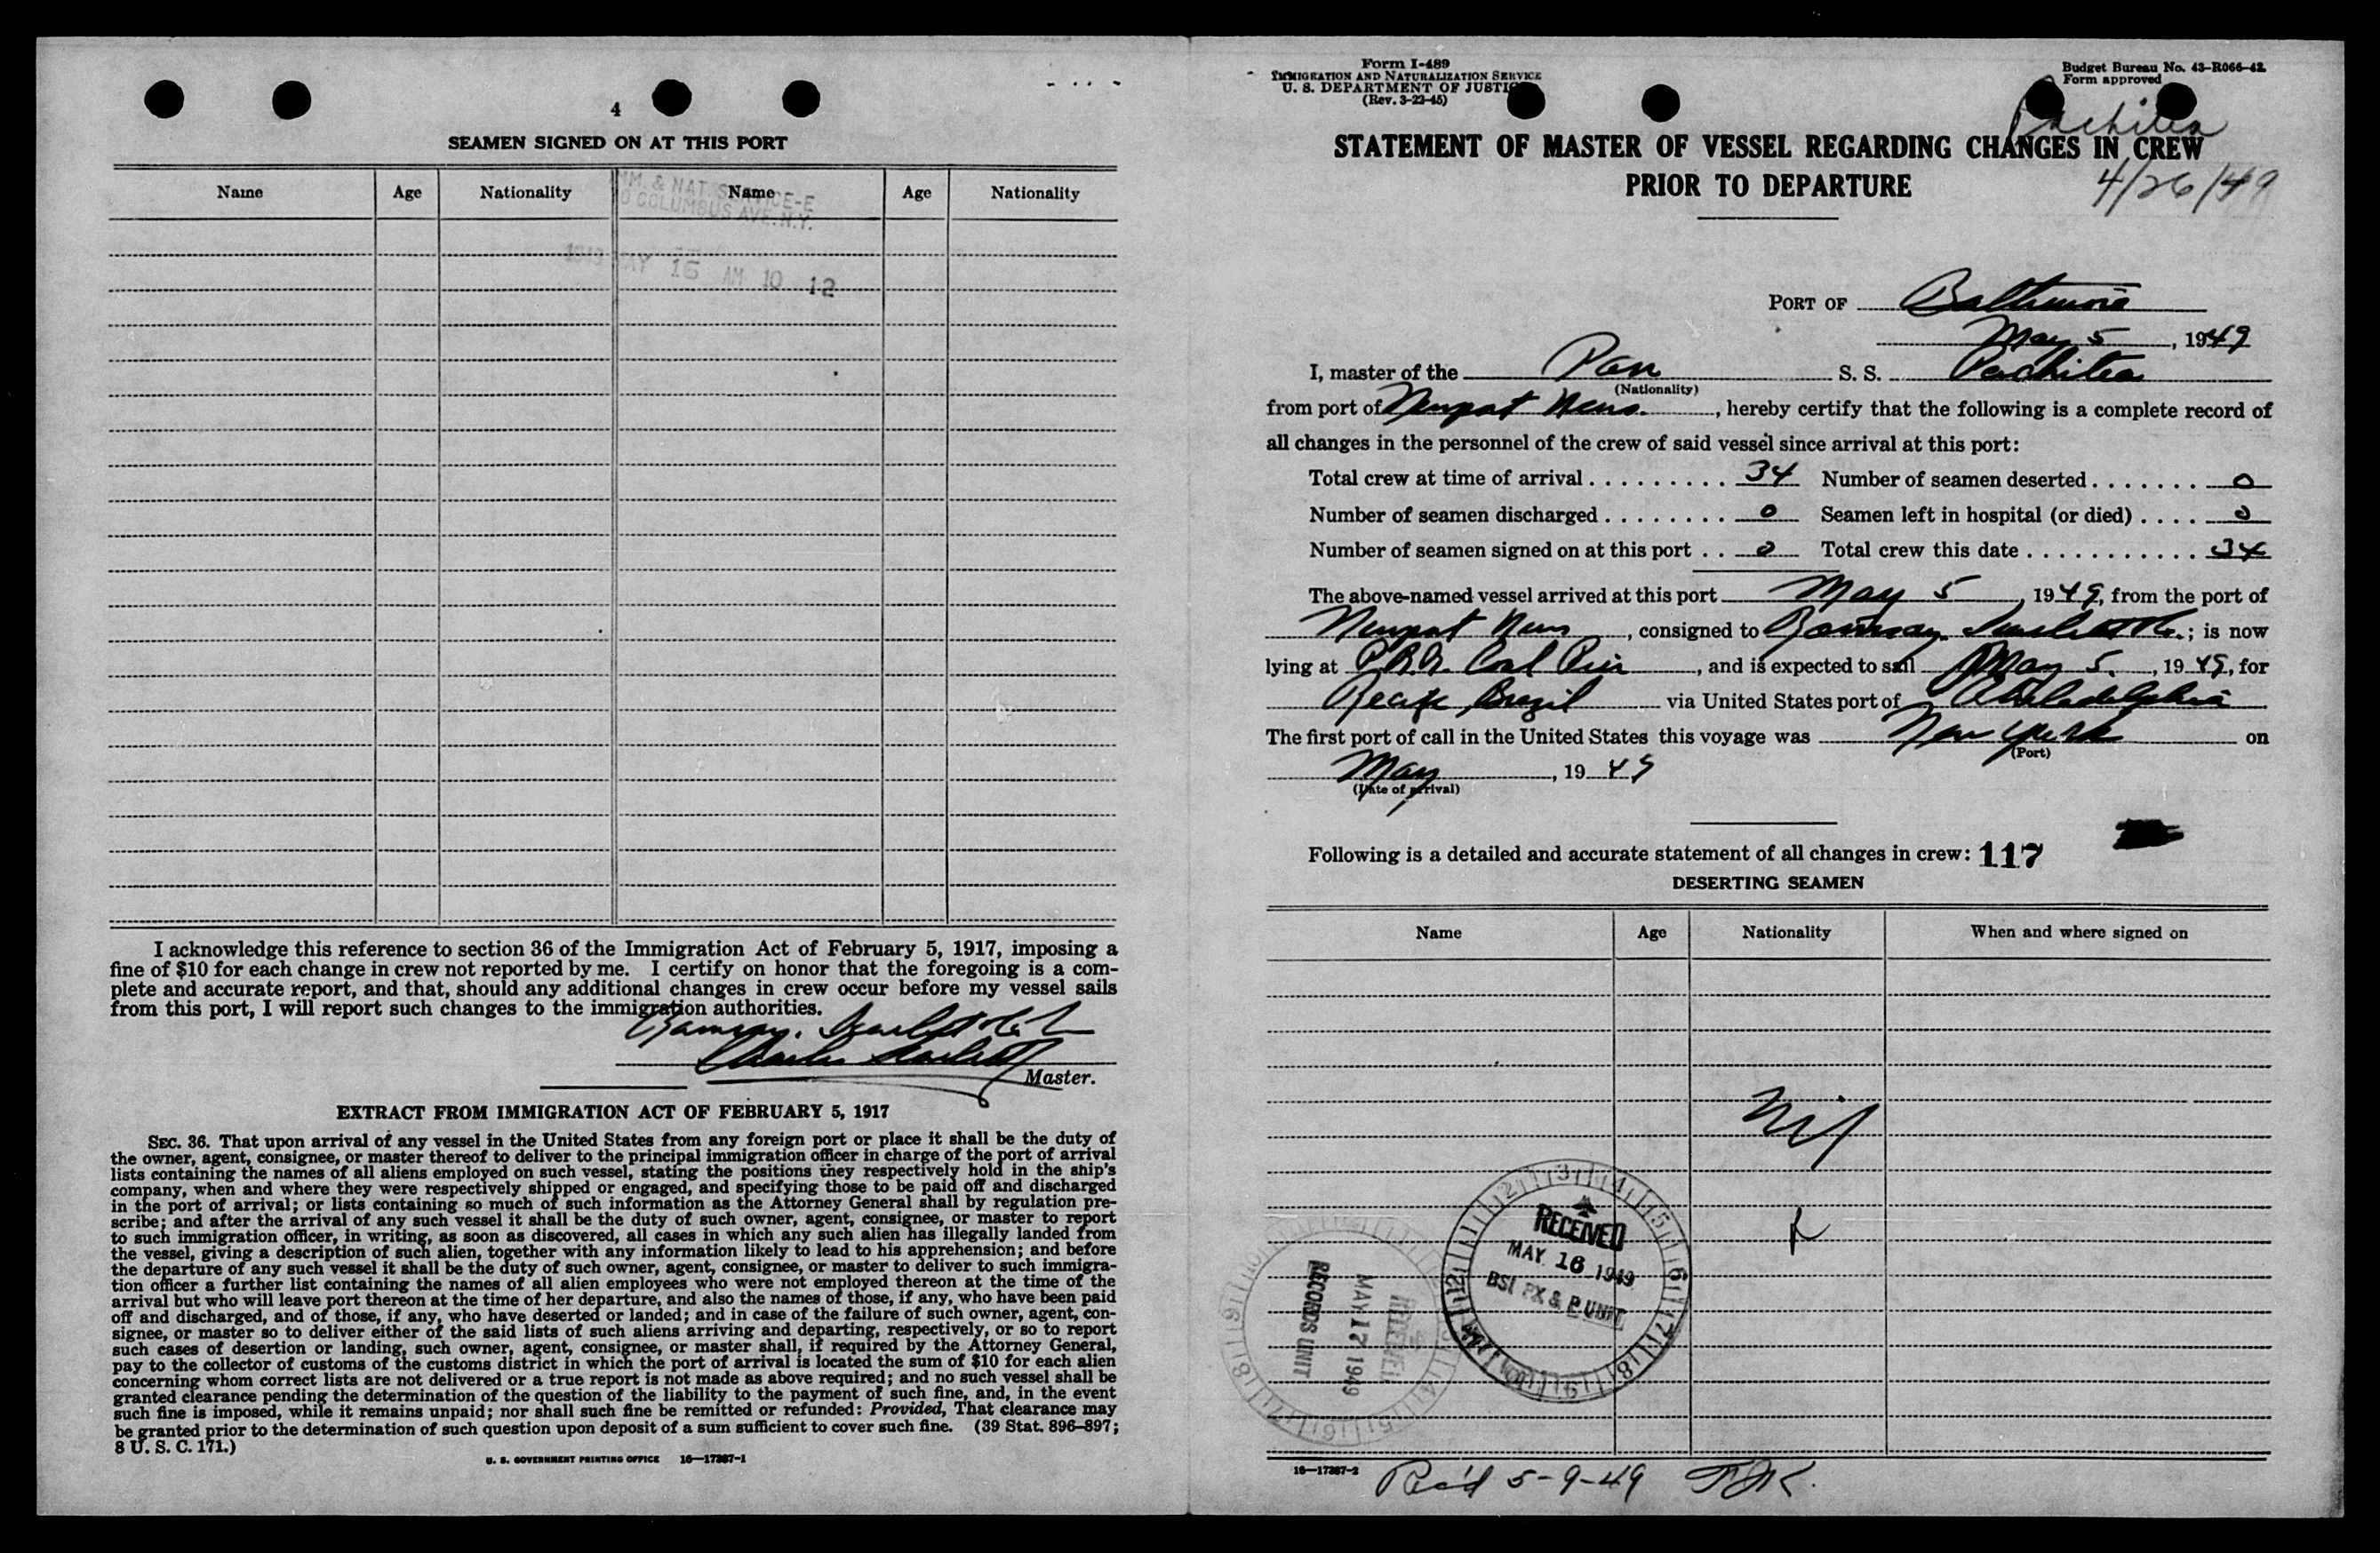 4
SEAMEN SIGNED ON AT THIS PORT
Name Age Nationality Name Age Nationality
IMM. & NAT. SERVICE-E
COLUMBUS AVE. N.Y.
MAY 16 AM 10 12
I acknowledge this reference to section 36 of the Immigration Act of February 5, 1917, imposing a
fine of $10 for each change in crew not reported by me. I certify on honor that the foregoing is a com-
plete and accurate report, and that, should any additional changes in crew occur before my vessel sails
from this port, I will report such changes to the immigration authorities.
Ramsay, Scarlett & Co
Charles Scarlett
Master.
EXTRACT FROM IMMIGRATION ACT OF FEBRUARY 5, 1917
SEC. 36. That upon arrival of any vessel in the United States from any foreign port or place it shall be the duty of
the owner, agent, consignee, or master thereof to deliver to the principal immigration officer in charge of the port of arrival
lists containing the names of all aliens employed on such vessel, stating the positions they respectively hold in the ship's
company, when and where they were respectively shipped or engaged, and specifying those to be paid off and discharged
in the port of arrival; or lists containing so much of such information as the Attorney General shall by regulation pre-
scribe; and after the arrival of any such vessel it shall be the duty of such owner, agent, consignee, or master to report
to such immigration officer, in writing, as soon as discovered, all cases in which any such alien has illegally landed from
the vessel, giving a description of such alien, together with any information likely to lead to his apprehension; and before
the departure of any such vessel it shall be the duty of such owner, agent, consignee, or master to deliver to such immigra-
tion officer a further list containing the names of all alien employees who were not employed thereon at the time of the
arrival but who will leave port thereon at the time of her departure, and also the names of those, if any, who have been paid
off and discharged, and of those, if any, who have deserted or landed; and in case of the failure of such owner, agent, con-
signee, or master so to deliver either of the said lists of such aliens arriving and departing, respectively, or so to report
such cases of desertion or landing, such owner, agent, consignee, or master shall, if required by the Attorney General,
pay to the collector of customs of the customs district in which the port of arrival is located the sum of $10 for each alien
concerning whom correct lists are not delivered or a true report is not made as above required; and no such vessel shall be
granted clearance pending the determination of the question of the liability to the payment of such fine, and, in the event
such fine is imposed, while it remains unpaid; nor shall such fine be remitted or refunded: Provided, That clearance may
be granted prior to the determination of such question upon deposit of a sum sufficient to cover such fine. (39 Stat. 896-897;
8 U. S. C. 171.)
U. S. GOVERNMENT PRINTING OFFICE 16—17267-1
Form I-489
IMMIGRATION AND NATURALIZATION SERVICE
U. S. DEPARTMENT OF JUSTICE
(Rev. 3-22-45)
Budget Bureau No. 43-R066-42
Form approved
Pachitea
STATEMENT OF MASTER OF VESSEL REGARDING CHANGES IN CREW
PRIOR TO DEPARTURE
4/26/49
PORT OF Baltimore
May 5, 1949
I, master of the Pan S. S. Pachitea
(Nationality)
from port of Newport News., hereby certify that the following is a complete record of
all changes in the personnel of the crew of said vessel since arrival at this port:
Total crew at time of arrival 34 Number of seamen deserted 0
Number of seamen discharged 0 Seamen left in hospital (or died) 0
Number of seamen signed on at this port 0 Total crew this date 34
The above-named vessel arrived at this port May 5, 1949, from the port of
Newport News, consigned to Ramsay, Scarlett & Co.; is now
lying at P.R.R. Coal Pier, and is expected to sail May 5, 1949, for
Recife, Brazil via United States port of Philadelphia
The first port of call in the United States this voyage was New York on
(Port)
May, 1949
(Date of arrival)
Following is a detailed and accurate statement of all changes in crew: 117
DESERTING SEAMEN
Name Age Nationality When and where signed on
Nil
RECEIVED
MAY 16 1949
BSI EX & P UNIT
RECEIVED
MAY 17 1949
RECORDS UNIT
16—17267-2
Rec'd 5-9-49 TJK.